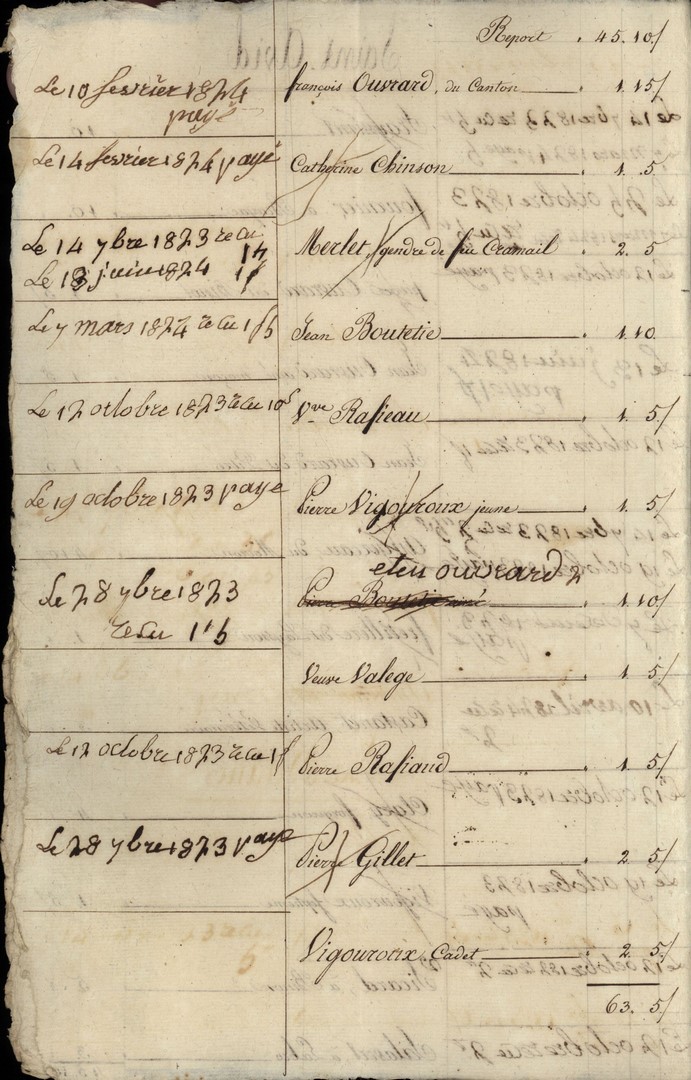 Report . 45. 10/
Le 10 fevrier 1824
payé
françois Ouvrard, du Canton . 1. 15/
Le 14 fevrier 1824 payé
Catherine Chinson . 1. 5/
Le 14 7bre 1823 recu 1f
Le 13 juin 1824 1f
Merlet, gendre de feu Cramail . 2. 5
Le 7 mars 1824 recu 1f 5
Jean Boutetie . 1. 10
Le 12 octobre 1823 recu 10s
Vve Rafieau . 1. 5/
Le 19 octobre 1823 paye
Pierre Vigouroux jeune . 1. 5/
Le 28 7bre 1823
recu 1f 5
etien ouvrard
Pierre . 1. 10/
Veuve Valege . 1. 5/
Le 12 octobre 1823 recu 1f
Pierre Rafiaud . 1. 5/
Le 28 7bre 1823 paye
Pierre Gillet . 2. 5/
Vigouroux, Cadet . 2. 5/
63. 5/